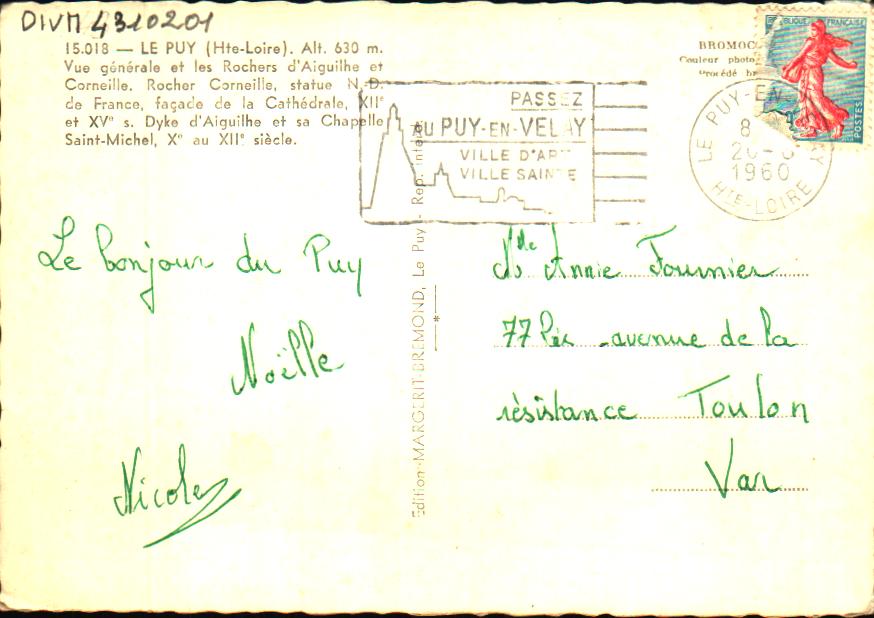 DIVM 4310201
15.018 — LE PUY (Hte-Loire). Alt. 630 m.
Vue générale et les Rochers d'Aiguilhe et
Corneille. Rocher Corneille, statue N.-D.
de France, façade de la Cathédrale, XIIe
et XVe s. Dyke d'Aiguilhe et sa Chapelle
Saint-Michel, Xe au XIIe siècle.
PASSEZ
au PUY-EN-VELAY
VILLE D'ART
VILLE SAINTE
BROMOC
Couleur photo
Procédé
LE PUY-EN-VELAY
8
1960
HTE-LOIRE
PUBLIQUE FRANÇAISE
POSTES
Le bonjour du Puy
Noëlle
Nicole
Edition MARGERIT-BREMOND, Le Puy - Rep. inter.
Mlle Annie Fournier
77 avenue de la
résistance Toulon
Var